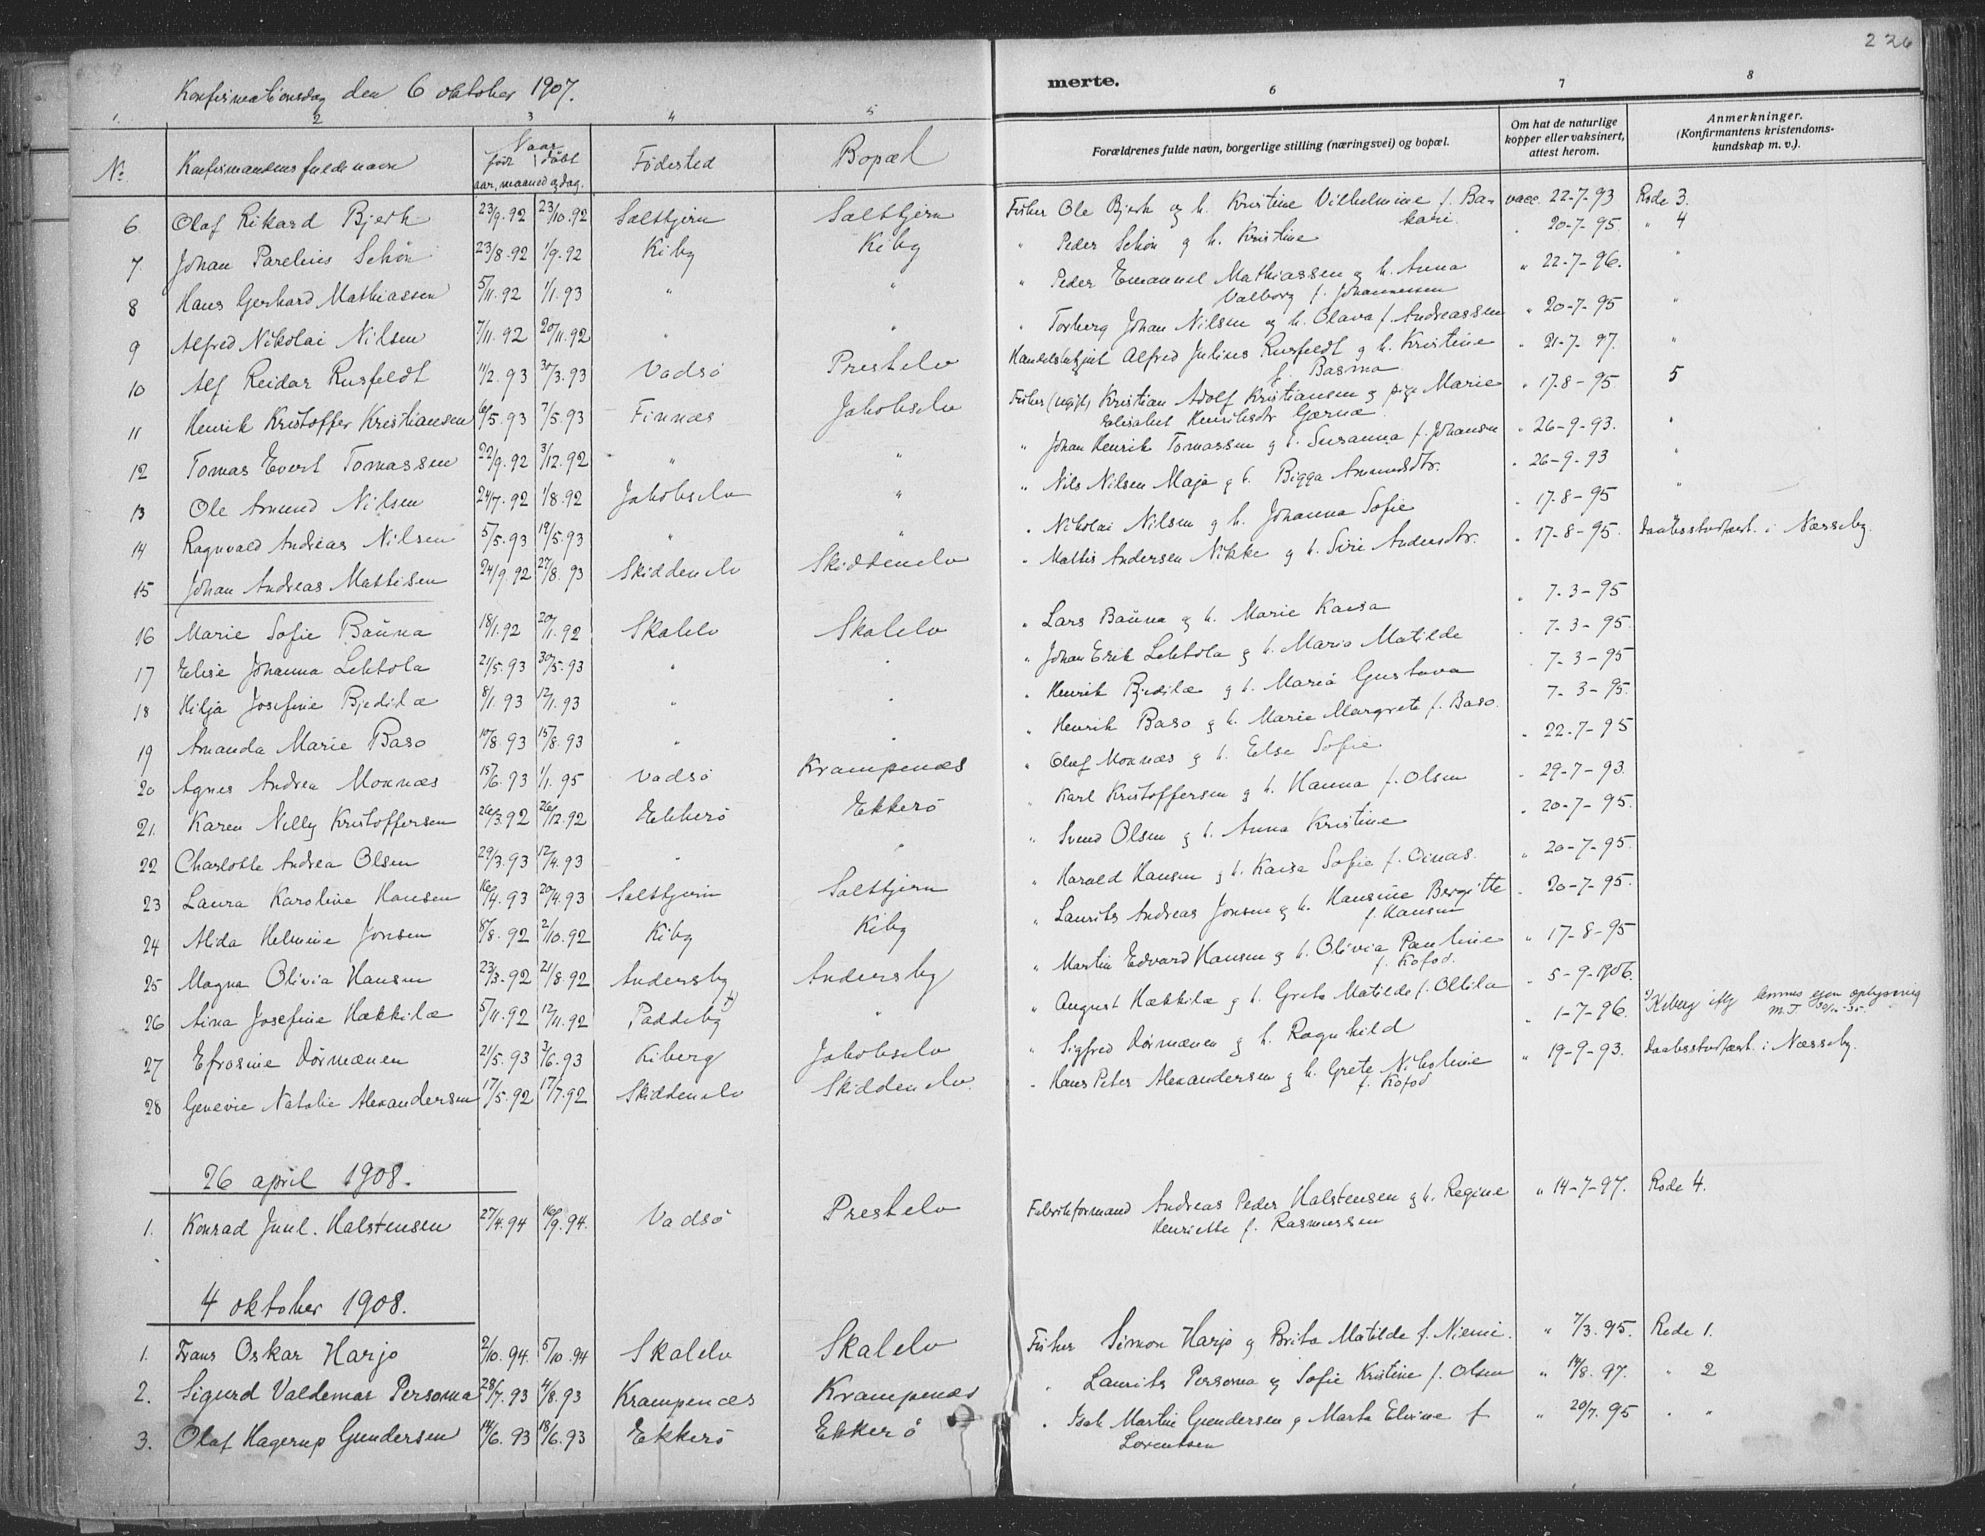 226
Konfirmationsdag den 6 oktober 1907.
merte.
1. 2 3 4 5 6 7 8
No Konfirmandens fulde navn Naar født døbt aar, maaned og dag. Fødested Bopæl Forældrenes fulde navn, borgerlige stilling (næringsvei) og bopæl. Om hat de naturlige kopper eller vaksinert, attest herom. Anmerkninger. (Konfirmantens kristendomskundskap m. v.).
6 Olaf Rikard Bjerk 23/9.92 23/10.92 Saltbjern Saltbjern Fisker Ole Bjerk og h. Kristine Vilhelmine f. Bakari vacc. 22-7-93 Rode 3.
7. Johan Parelius Schøn 23/8.92 1/9.92 Kiby Kiby " Peder Schøn og h. Kristine " 20-7-95 " 4
8 Hans Gerhard Mathiassen 5/11.92 1/1.93 " " " Peder Emanuel Mathiassen og h. Anna Valborg f. Johannessen " 22-7-96. "
9 Alfred Nikolai Nilsen 7/11.92 20/11.92 " " " Torberg Johan Nilsen og h. Olava f. Andreassen " 20-7-95 "
10 Alf Reidar Rusfeldt 11/2.93 30/3.93 Vadsø Prestelv Handelsbetjent Alfred Julius Rusfeldt og h. Kristine f. Basma " 21-7-97. "
11 Henrik Kristoffer Kristiansen 6/5.93 7/5.93 Finnæs Jakobselv Fisker (ugift) Kristian Adolf Kristiansen og pige Marie Elisabet Henriksdtr Gærnæ " 17-8-95 5
12 Tomas Evert Tomassen 22/9.92 3/12.92 " " " Johan Henrik Tomassen og h. Susanna f. Johansen " 26-9-93. "
13 Ole Amund Nilsen 24/7.92 1/8.92 Jakobselv " " Nils Nilsen Maja og h. Bigga Amundsdtr. " 26-9-93 "
14 Ragnvald Andreas Nilsen 5/5.93 19/5.93 " " " Nikolai Nilsen og h. Johanna Sofie " 17-8-95 "
15 Johan Andreas Mattisen 24/9.92 27/8.93 Skiddenelv Skiddenelv " Mattis Andersen Nikke og h. Siri Andersdtr. " 17-8-95. Daabsstadfæst. i Næsseby.
16 Marie Sofie Bauna 18/1.92 20/1.92 Skalelv Skalelv " Lars Bauna og h. Marie Kaisa " 7-3-95
17 Elise Johanna Lehtola 21/5.93 30/5.93 " " " Johan Erik Lehtola og h. Maria Matilde " 7-3-95.
18 Hilja Josefine Bjedilæ 8/1.93 12/1.93 " " " Henrik Bjedilæ og h. Maria Gustava " 7-3-95
19 Amanda Marie Baso 10/8.93 15/8.93 " " " Henrik Baso og h. Marie Margrete f. Baso. 7-3-95.
20 Agnes Andrea Moxnæs 15/6.93 1/1.95 Vadsø Krampenæs " Oluf Moxnæs og h. Else Sofie " 22-7-95
21. Karen Nelly Kristoffersen 26/3.92 26/12.92 Ekkerø Ekkerø " Karl Kristoffersen og h. Hanna f. Olsen " 29-7-93.
22 Charlotte Andrea Olsen 29/3.93 12/4.93 " " " Svend Olsen og h. Anna Kristine " 20-7-95.
23 Laura Karoline Hansen 16/4.93 20/4.93 Saltbjern Saltbjern " Harald Hansen og h. Kaisa Sofie f. Oinas. " 20-7-95.
24 Alida Helmine Jonsen 8/8.92 2/10.92 Kiby Kiby " Laurits Andreas Jonsen og h. Hansine Bergitte f. Hansen " 20-7-95.
25 Magna Olivia Hansen 23/3.92 21/8.92 Andersby Andersby " Martin Edvard Hansen og h. Olivia Pauline f. Kofod. " 17-8-95
26 Aina Josefine Hækkilæ 5/11.92 12/11.92 Paddeby 1) " " August Hækkilæ og h. Greta Matilde f. Ollila " 5-9-1906. 1) Kiberg iflg hennes egen oplysning
27 Efrosine Dørmænen 21/5.93 2/6.93 Kiberg Jakobselv " Sigfred Dørmænen og h. Ragnhild " 1-7-96.
28 Genevie Natalie Alexandersen 17/5.92 17/7.92 Skiddenelv Skiddenelv. " Hans Peter Alexandersen og h. Grete Nikoline f. Kofod " 19-9-93. Daabsstadfæst. i Næsseby.
26 april 1908.
1. Konrad Juul. Halstensen 27/4.94 16/9.94. Vadsø Prestelv Fabrikformand Andreas Peder Halstensen og h. Regine Henriette f. Rasmussen " 14-7-97. Rode 4.
4 oktober 1908.
1. Frans Oskar Harjo 2/10.94. 5/10.94 Skalelv Skalelv Fisker Simon Harjo og Brita Matilde f. Niemi. " 7/3.95. Rode 1.
2. Sigurd Valdemar Persoma 28/7.93 4/8.93 Krampenæs Krampenæs " Laurits Persoma og Sofie Kristine f. Olsen " 14/8.97. " 2
3. Olaf Hagerup Gundersen 14/6.93 18/6.93 Ekkerø Ekkerø " Isak Martin Gundersen og Marta Elvine f Lorentsen " 20/7.95 " "